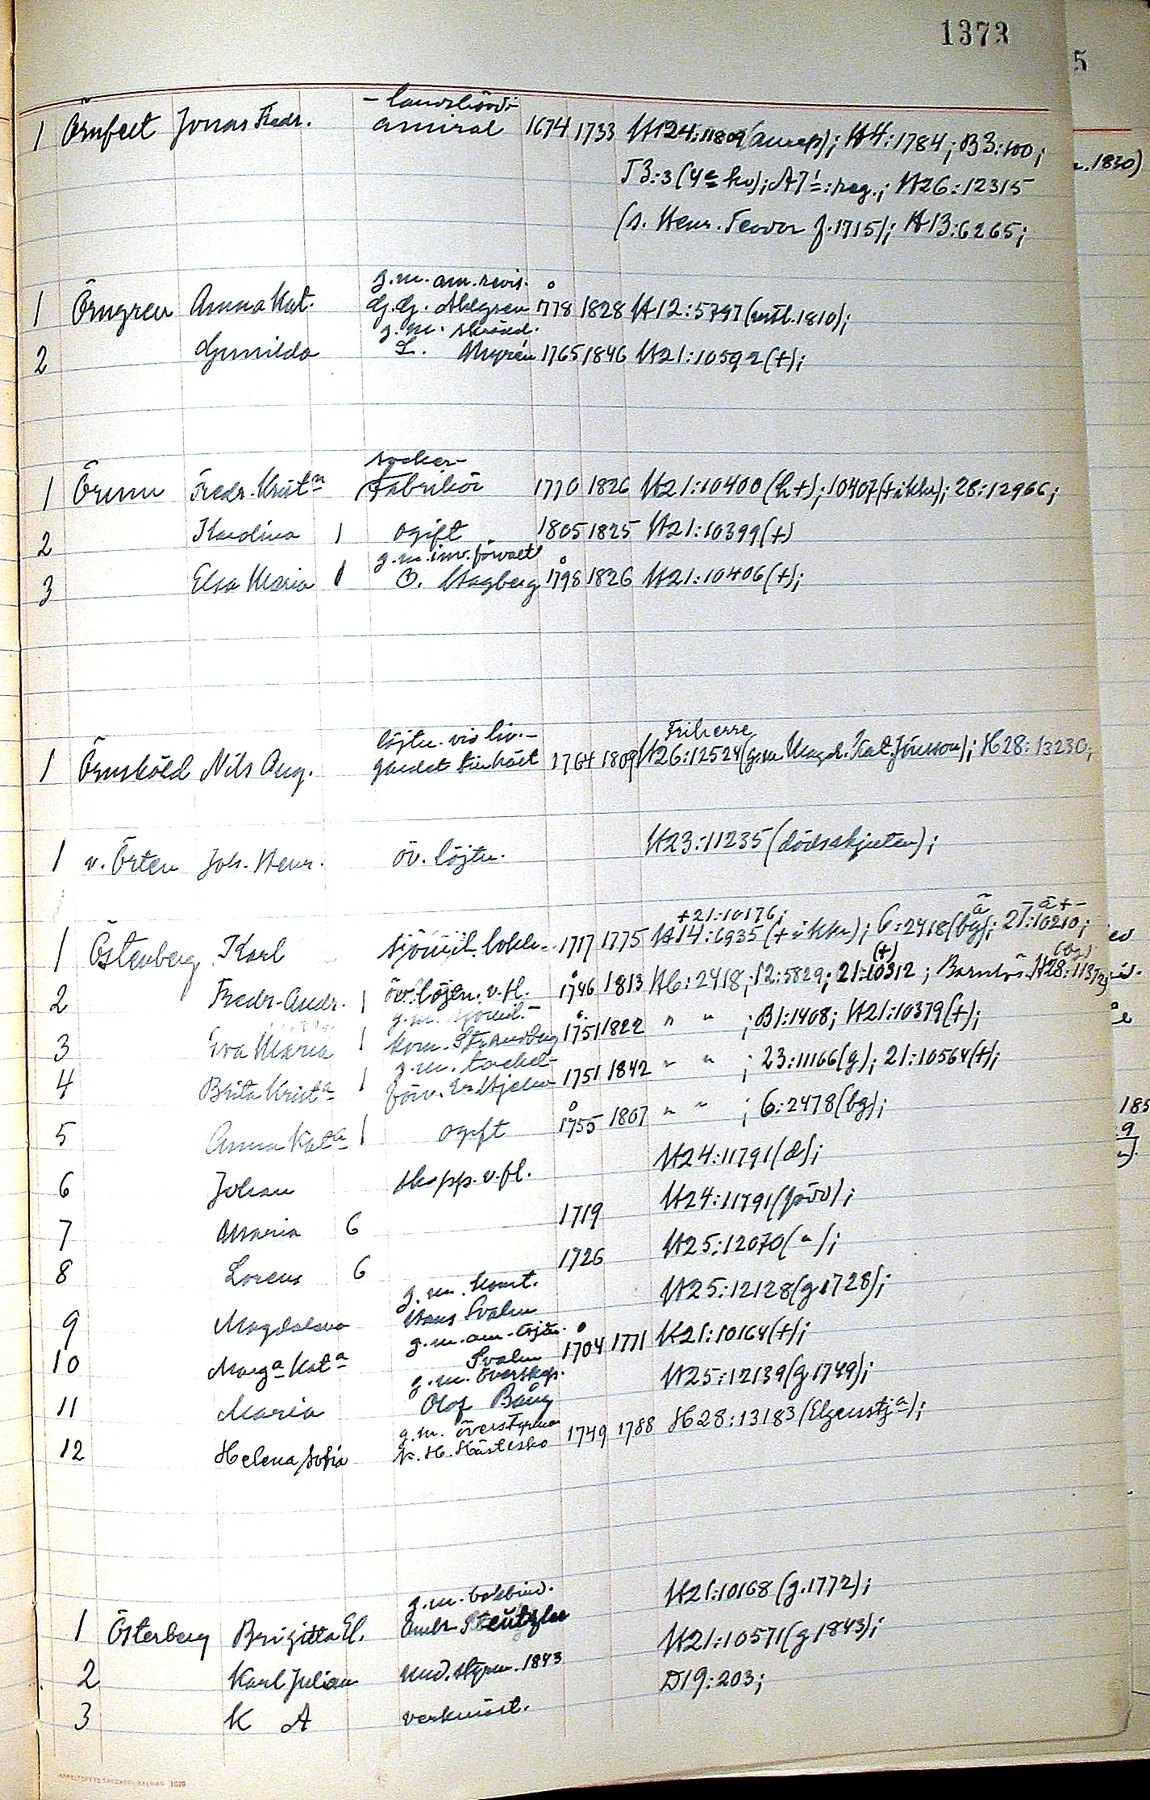 1373
5
- landshövd-
1 Örnfelt Jonas Fredr. amiral 1674 1733 H24:11809 (ansep); H4:1784; B3:100;
r. 1830)
T3:3 (4e kv); A71=:reg.; H26:12315
(s. Henr. Teodor f. 1715); H13:6265;
g.m. am.revis. o
1 Örngren Anna Kat. G.G. Ahlgren 1778 1828 H12:5797 (utfl.1810);
g.m. skräd.
2 Gunilda L. Myrén 1765 1846 H21:10592 (+);
socker-
1 Örnn Fredr. Krist n fabrikör 1770 1826 H21:10400 (h+); 10407 (+ikke); 28:12966;
2 Karolina 1 ogift 1805 1825 H21:10399 (+)
g.m. inv. förvalt o
3 Elsa Maria 1 O. Hagberg 1798 1826 H21:10406 (+);
löjtn. vid liv.- Friherre
1 Örnsköld Nils Aug. gardet till häst 1764 1809 H26:12524 (g.m. Magd. Kat. Jönsson); H28:13230;
1 v. Örten Joh. Henr. öv. löjtn. H23:11235 (dödsskjuten);
+21:10176; ä - ä + -
1 Östenberg Karl sjömil. 1717 1775 H14:6935 (+ ikke); 6:2418 (bg); 21:10210;
(+) (bg)
2 Fredr. Andr. 1 öv. löjtn. v. fl. 1746 1813 H6:2418; 12:5829; 21:10312;
g.m. sjömil.- o
3 Eva Maria 1 kom. Strandberg 1751 1822 " " ; B1:1408; H21:10379 (+);
g.m. tackel-
4 Brita Krist a 1 förv. 1751 1842 " " ; 23:11166 (g); 21:10564 (+);
o
5 Anna Kat a 1 ogift 1755 1807 " " ; 6:2478 (bg);
185
9
6 Johan skepp. v. fl. H24:11791 (d);
7 Maria 6 1719 H24:11791 (född);
8 Lorens 6 1726 H25:12070 ( " );
g.m. konst.
9 Magdalena Hans Svahn H25:12128 (g.1728);
g.m. am. o
10 Marg a Kat a Svahn 1704 1771 H21:10164 (+);
g.m. överskep.
11 Maria Olof Bång H25:12139 (g.1749);
g.m. överstyrm
12 Helena Sofia K. H. Hästesko 1749 1788 H28:13183 (Elgenstj a);
g.m. bokbind.
1 Österberg Brigitta El. H21:10168 (g.1772);
2 Karl Julian und. styrm. 1843 H21:10571 (g 1843);
3 K A verkmäst. D19:203;